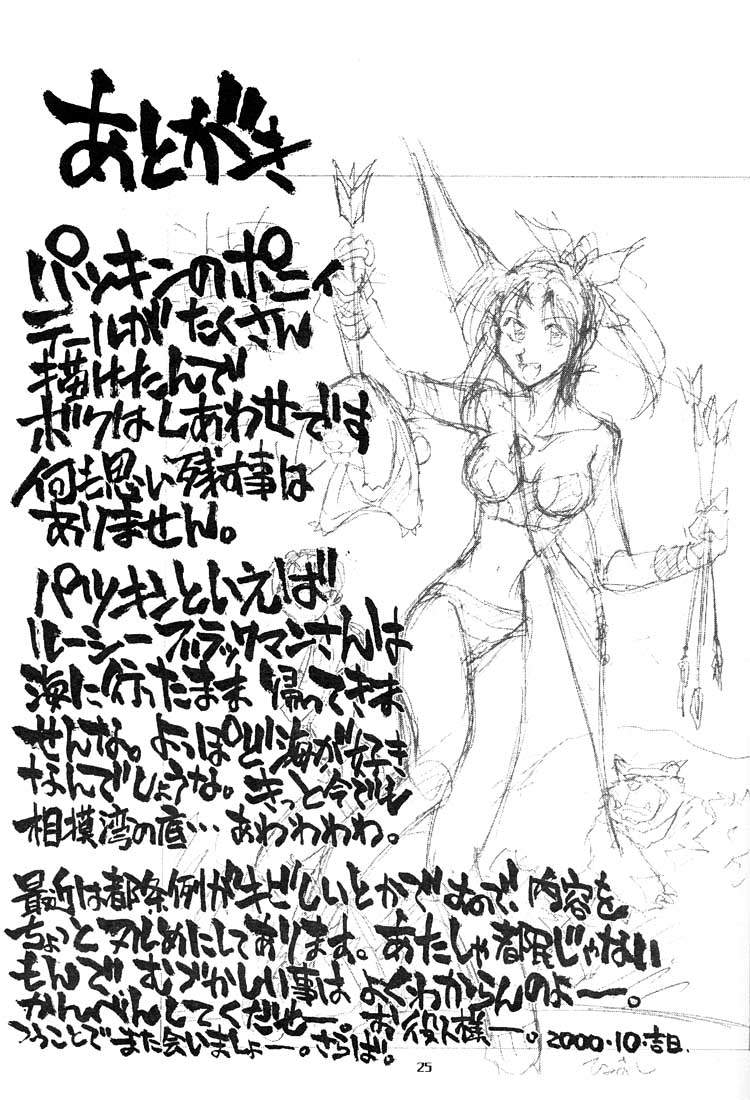 あとがき
パッキンのポニィ
テールがたくさん
描けたんで
ボクはしあわせです
何も思い残す事は
ありません。
パツキンといえば
ルーシーブラックマンさんは
海に行ったまま 帰ってきま
せんな。よっぽど海が好き
なんでしょうな。きっと今でも
相模湾の底… あわわわわ。
最近は都条例がキビしいとかですので、内容を
ちょっとヌルめにしてあります。あたしゃ都民じゃない
もんで むづかしい事は よくわからんのよー。
かんべんしてくだせー。お役人様ー。
つうことで また会いましょー。さらば。
2000.10.吉日.
25